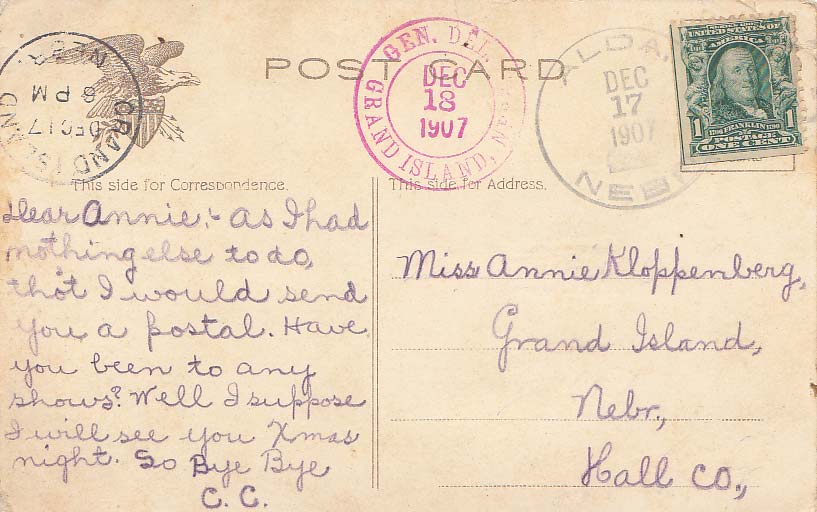 POST CARD
GRAND ISLAND
NEBR.
DEC 17
6 PM
GEN. DEL.
DEC
18
1907
GRAND ISLAND, NEBR.
ALDA,
DEC
17
1907
NEBR.
SERIES 1902
UNITED STATES OF
AMERICA
1 1
1706 FRANKLIN 1790
POSTAGE
ONE CENT
This side for Correspondence.
This side for Address.
Dear Annie:- as I had
nothing else to do,
thot I would send
you a postal. Have
you been to any
shows? Well I suppose
I will see you Xmas
night. So Bye Bye
C. C.
Miss Annie Kloppenberg,
Grand Island,
Nebr.,
Hall Co.,